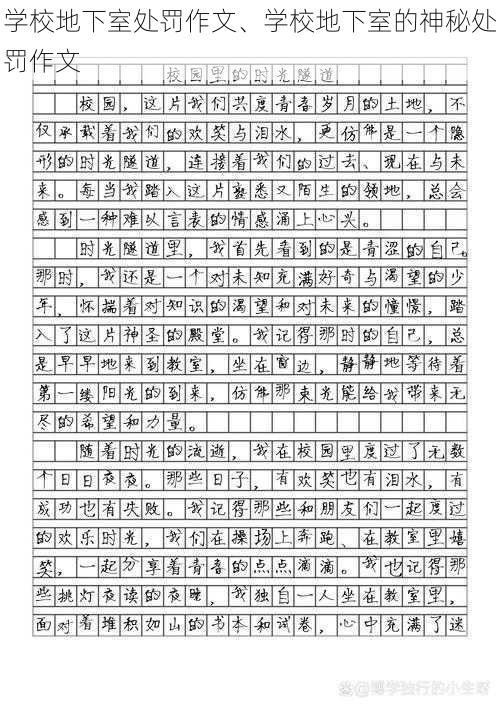 学校地下室处罚作文、学校地下室的神秘处
罚作文
校园里的时光隧道
校园，这片我们共度青春岁月的土地，不
仅承载着我们的欢笑与泪水，更仿佛是一个隐
形的时光隧道，连接着我们的过去、现在与未
来。每当我踏入这片熟悉又陌生的领地，总会
感到一种难以言表的情感涌上心头。
时光隧道里，我首先看到的是青涩的自己。
那时，我还是一个对未知充满好奇与渴望的少
年，怀揣着对知识的渴望和对未来的憧憬，踏
入了这片神圣的殿堂。我记得那时的自己，总
是早早地来到教室，坐在窗边，静静地等待着
第一缕阳光的到来，仿佛那束光能给我带来无
尽的希望和力量。
随着时光的流逝，我在校园里度过了无数
个日日夜夜。那些日子，有欢笑也有泪水，有
成功也有失败。我记得那些和朋友们一起度过
的欢乐时光，我们在操场上奔跑、在教室里嬉
笑，一起分享着青春的点点滴滴。我也记得那
些挑灯夜读的夜晚，我独自一人坐在教室里，
面对着堆积如山的书本和试卷，心中充满了迷
@博学独行的小生呀